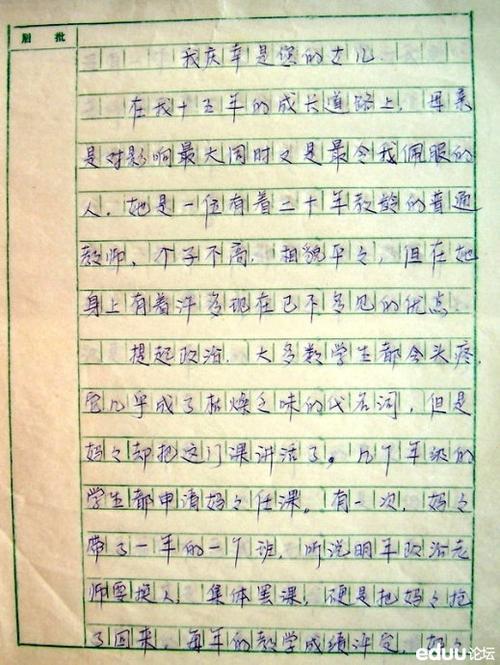 眉批
我庆幸是您的女儿
在我十五年的成长道路上，母亲
是对影响最大同时又是最令我佩服的
人。她是一位有着二十年教龄的普通
教师，个子不高，相貌平々，但在她
身上有着许多现在已不多见的优点。
提起政治，大多数学生都会头疼，
它几乎成了枯燥乏味的代名词，但是
妈々却把这门课讲活了。几个年级的
学生都申请妈々任课。有一次，妈々
带了一年的一个班，听说明年政治老
师要换人，集体罢课，硬是把妈々抢
了回来，每年的教学成绩评定，妈々
eduu论坛